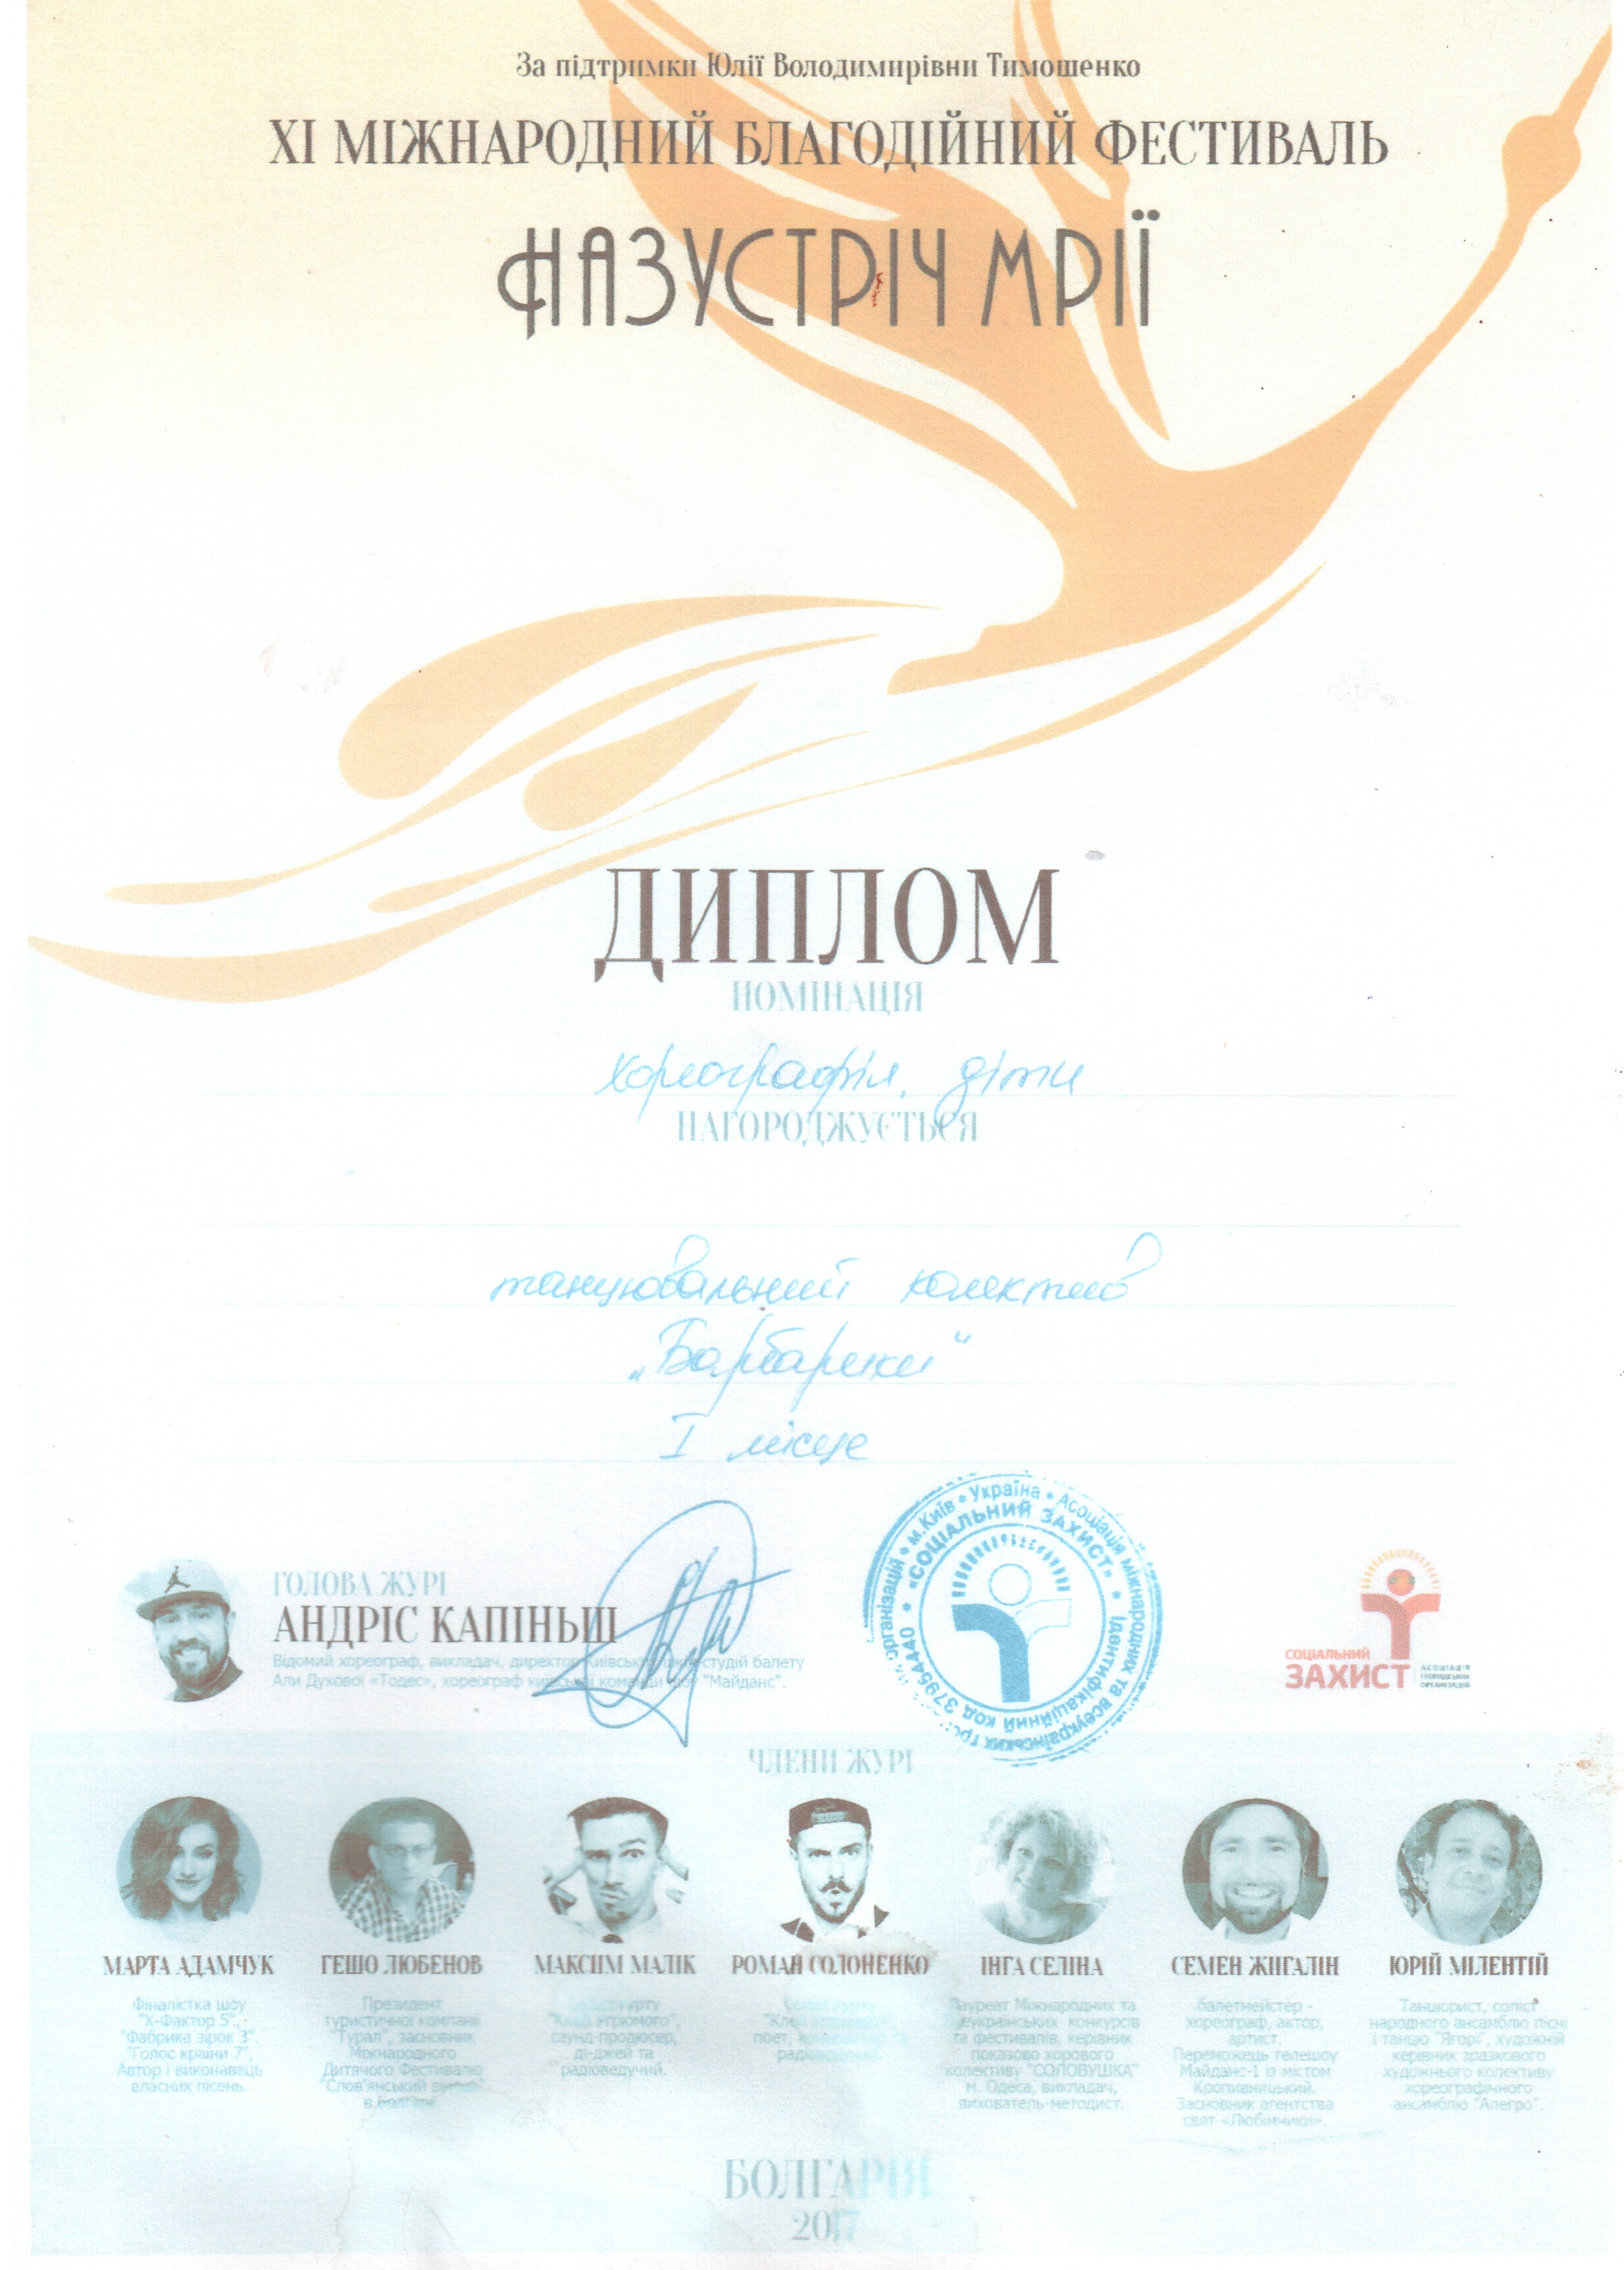 За підтримки Юлії Володимирівни Тимошенко
XI МІЖНАРОДНИЙ БЛАГОДІЙНИЙ ФЕСТИВАЛЬ
НАЗУСТРІЧ МРІЇ
ДИПЛОМ
НОМІНАЦІЯ
хореографія, діти
НАГОРОДЖУЄТЬСЯ
танцювальний колектив
„Барбарики“
I місце
ГОЛОВА ЖУРІ
АНДРІС КАПІНЬШ
Відомий хореограф, викладач, директор Київських шкіл-студій балету
Али Духової «Тодес», хореограф київської команди шоу "Майданс".
м.Київ * Україна * Асоціація міжнародних та всеукраїнських організацій
«СОЦІАЛЬНИЙ ЗАХИСТ» * Ідентифікаційний код 37954440
СОЦІАЛЬНИЙ
ЗАХИСТ
АСОЦІАЦІЯ
ГРОМАДСЬКИХ
ОРГАНІЗАЦІЙ
ЧЛЕНИ ЖУРІ
МАРТА АДАМЧУК
Фіналістка шоу
"Х-Фактор 5",
"Фабрика зірок 3",
"Голос країни 7",
Автор і виконавець
власних пісень.
ГЕШО ЛЮБЕНОВ
Президент
туристичної компанії
"Турал", засновник
Міжнародного
Дитячого Фестивалю
Слов'янський
в Болгарії
МАКСИМ МАЛІК
"Клей Угрюмого",
саунд-продюсер,
ді-джей та
радіоведучий.
РОМАН СОЛОНЕНКО
"Клей
поет, та
ІНГА СЕЛІНА
Лауреат Міжнародних та
Всеукраїнських конкурсів
та фестивалів, керівник
показово хорового
колективу "СОЛОВУШКА"
м. Одеса, викладач,
вихователь-методист.
СЕМЕН ЖИГАЛІН
балетмейстер -
хореограф, актор,
артист.
Переможець телешоу
Майданс-1 із містом
Кропивницький.
Засновник агентства
свят «Любімчики».
ЮРІЙ МІЛЕНТІЙ
Танцюрист, соліст
народного ансамблю пісні
і танцю "Ягорі", художній
керівник зразкового
художнього колективу
хореографічного
ансамблю "Алегро".
БОЛГАРІЯ
2017